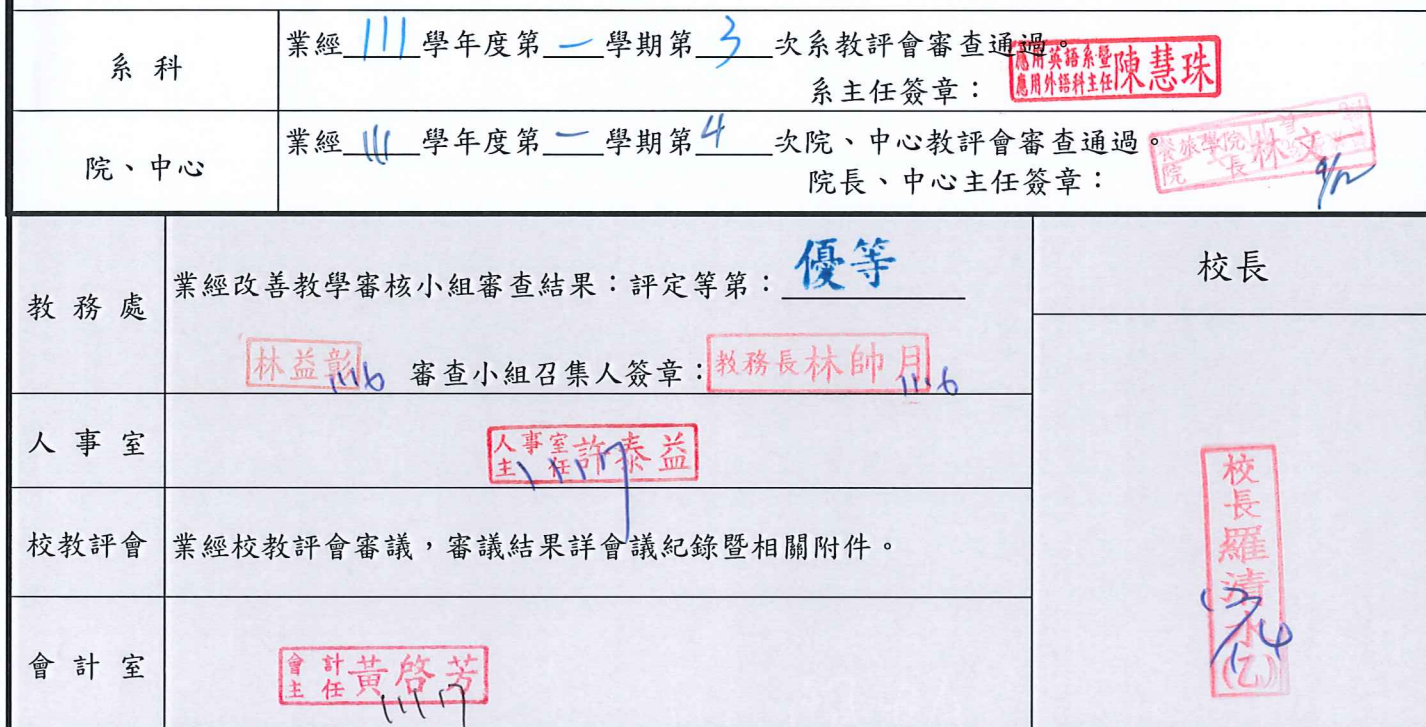 系科
業經 111 學年度第 一 學期第 3 次系教評會審查通過。
系主任簽章：
應用英語系暨
應用外語科主任 陳慧珠
院、中心
業經 111 學年度第 一 學期第 4 次院、中心教評會審查通過。
院長、中心主任簽章：
餐旅學院
院長 林文一
教務處
業經改善教學審核小組審查結果：評定等第：優等
林益彰 11.16 審查小組召集人簽章：教務長林帥月 11.16
人事室
人事室
主任 許泰益
1117
校教評會
業經校教評會審議，審議結果詳會議紀錄暨相關附件。
會計室
會計
主任 黃啓芳
1117
校長
校長羅清水(乙)